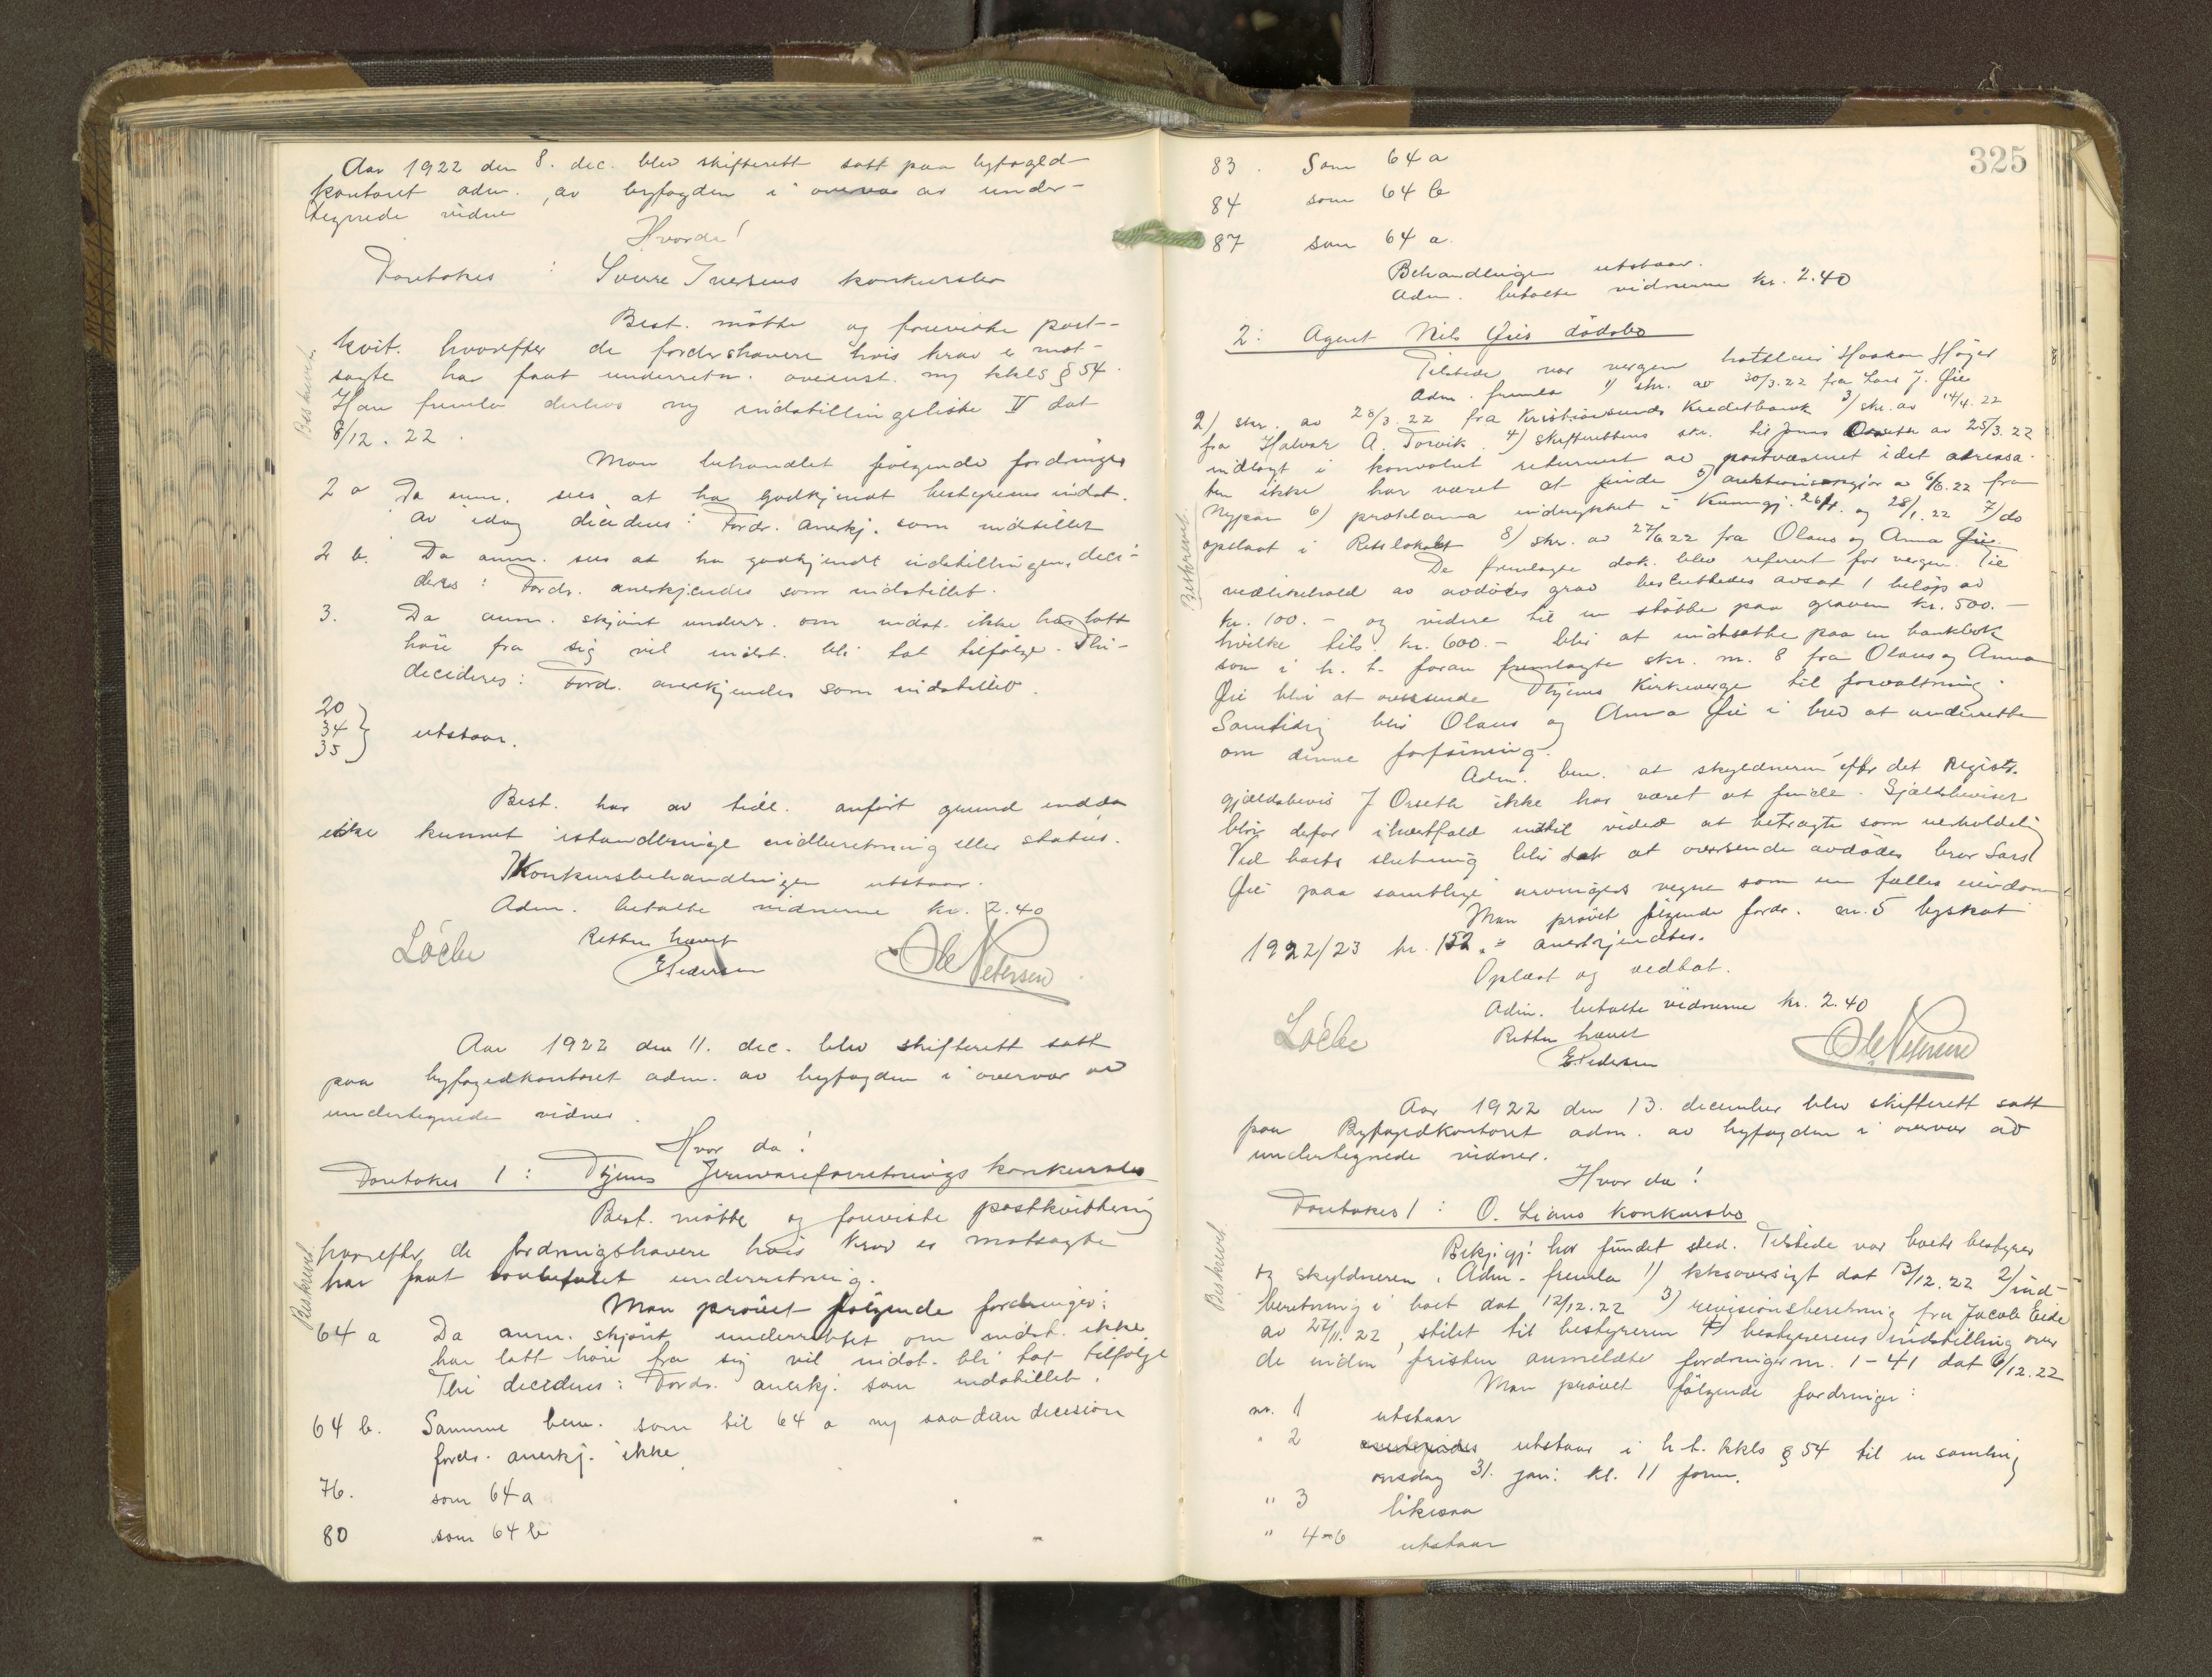 Aar 1922 den 8. dec. blev skifterett satt paa byfogd-
kontoret adm. av byfogden i overvær av under-
tegnede vidner
Hvorda!
Foretokes : Sverre Iversens konkursbo
Best. møtte og foreviste post-
kvit. hvorefter de fordr.havere hvis krav er mot-
sagte har faat underretn. overenst. m kkls § 54.
Han fremla derhos ny indstillingsliste V dat
8/12. 22.
Beskrevet
Man behandlet følgende fordringer
2 a Da anm. sees at ha godkjendt bestyrerens indst.
av idag decideres: Fordr. anerkj. som indstillet
2 b. Da anm. sees at ha godkjendt indstillingen, deci-
deres: Fordr. anerkjendes som indstillet.
3. Da anm. skjønt underr. om indst. ikke har latt
høre fra sig vil indst. bli tat tilfølge. Thi
decideres: Ford. anerkjendes som indstillet.
20
34 } utstaar.
35
Best. har av tidl. anført grund endda
ikke kunnet istandbringe indberetning eller status.
Konkursbehandlingen utstaar.
Adm. betalte vidnerne kr. 2.40
Retten hævet
Løche EPedersen Ole Petersen
Aar 1922 den 11. dec. blev skifterett satt
paa byfogedkontoret adm. av byfogden i overvær av
undertegnede vidner.
Hvor da!
Foretokes 1 : Thjems Jernvareforretnings konkursbo
Best. møtte og foreviste postkvittering
hvorefter de fordringshavere hvis krav er motsagte
har faat lovbefalet underretning.
Beskrevet
Man prøvet følgende fordringer:
64 a Da anm. skjønt underrettet om indst. ikke
har latt høre fra sig vil indst. bli tat tilfølge
Thi decideres: Fordr. anerkj. som indstillet.
64 b. Samme bem. som til 64 a og saadan decision
fordr. anerkj. ikke
76. som 64 a
80 som 64 b
325
83. Som 64 a
84 som 64 b
87 som 64 a.
Behandlingen utstaar.
Adm. betalte vidnerne kr. 2.40
2: Agent Nils Øies dødsbo
Tilstede var vergen hoteleier Haakon Høyer
Adm. fremla 1) skr. av 30/3.22 fra Lars J. Øie
2) skr. av 28/3.22 fra Kristiansunds Kreditbank 3) skr. av 14/4.22
fra Halvar A. Torvik. 4) skifterettens skr. til Jons Orseth av 25/3.22
indlagt i konvolut returnert av postvæsenet idet adressa-
ten ikke har været at finde 5) auktions av 6/6.22 fra
6) proklama indrykket i Kunngj. 26/1. og 28/1.22 7) do
opslaat i Retslokalet 8) skr. av 27/6.22 fra Olaus og Anna Øie.
Beskrevet.
De fremlagte dok. blev referert for vergen. Til
vedlikehold av avdødes grav besluttedes avsat 1 beløp av
kr. 100.- og videre til en støtte paa graven kr. 500.-
hvilke tils. kr. 600.- blir at indsætte paa en bankbok
som i h. t. foran fremlagte skr. nr. 8 fra Olaus og Anna
Øie blir at oversende Thjems Kirkeverge til forvaltning.
Samtidig blir Olaus og Anna Øie i brev at underrette
om denne forføining.
Adm. bem. at skyldneren efter det registr.
gjældsbevis J Orseth ikke har været at finde. Gjældsbeviset
blir derfor ihvertfald indtil videre at betragte som uerholdelig
Ved boets slutning blir det at oversende avdødes bror Lars
Øie paa samtlige arvingers vegne som en fælles eiendom.
Man prøvet følgende fordr. nr. 5 byskat
1922/23 kr. 152.- anerkjendtes.
Oplæst og vedtat.
Adm. betalte vidnerne kr. 2.40
Retten hævet
Løche EPedersen Ole Petersen
Aar 1922 den 13. december blev skifterett satt
paa Byfogedkontoret adm. av byfogden i overvær av
undertegnede vidner.
Hvor da!
Foretokes 1 : O. Lians konkursbo
Bekj.gj. har fundet sted. Tilstede var boets bestyrer
og skyldneren. Adm. fremla 1) kksoversigt dat 13/12.22 2) ind-
beretning i boet dat. 12/12.22 3) revisionsberetning fra Jacob Eide
av 27/11.22, stilet til bestyreren 4) bestyrerens indstilling over
de inden fristen anmeldte fordringer nr. 1-41 dat 6/12.22
Beskrevet
Man prøvet følgende fordringer:
nr. 1 utstaar
" 2 utstaar i h.t. kkls § 54 til en samling
onsdag 31. jan. kl. 11 form.
" 3 likesaa
" 4-6 utstaar